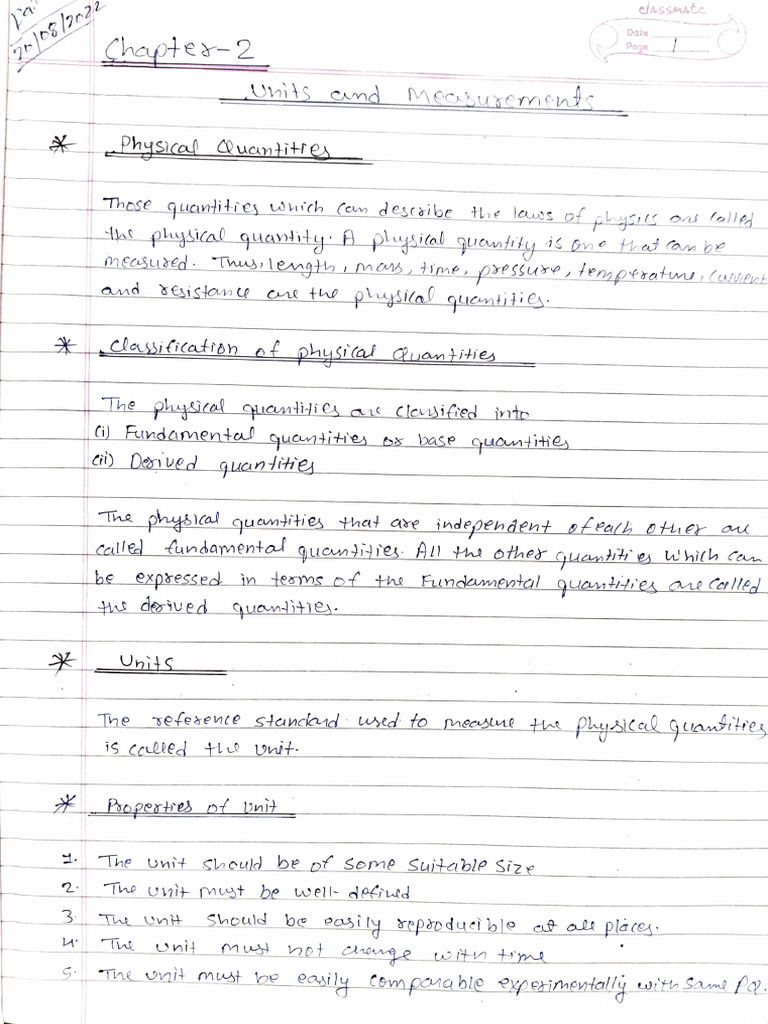 20/08/2022
classmate
Date
Page 1
Chapter-2
Units and Measurements
* Physical Quantities
Those quantities which can describe the laws of physics are called
the physical quantity. A physical quantity is one that can be
measured. Thus, length, mass, time, pressure, temperature, current
and resistance are the physical quantities.
* Classification of physical Quantities
The physical quantities are classified into
(i) Fundamental quantities or base quantities
(ii) Derived quantities
The physical quantities that are independent of each other are
called fundamental quantities. All the other quantities which can
be expressed in terms of the Fundamental quantities are called
the derived quantities.
* Units
The reference standard used to measure the physical quantities
is called the unit.
* Properties of Unit
1. The unit should be of some suitable size
2. The unit must be well-defined
3. The unit should be easily reproducible at all places.
4. The unit must not change with time
5. The unit must be easily comparable experimentally with same